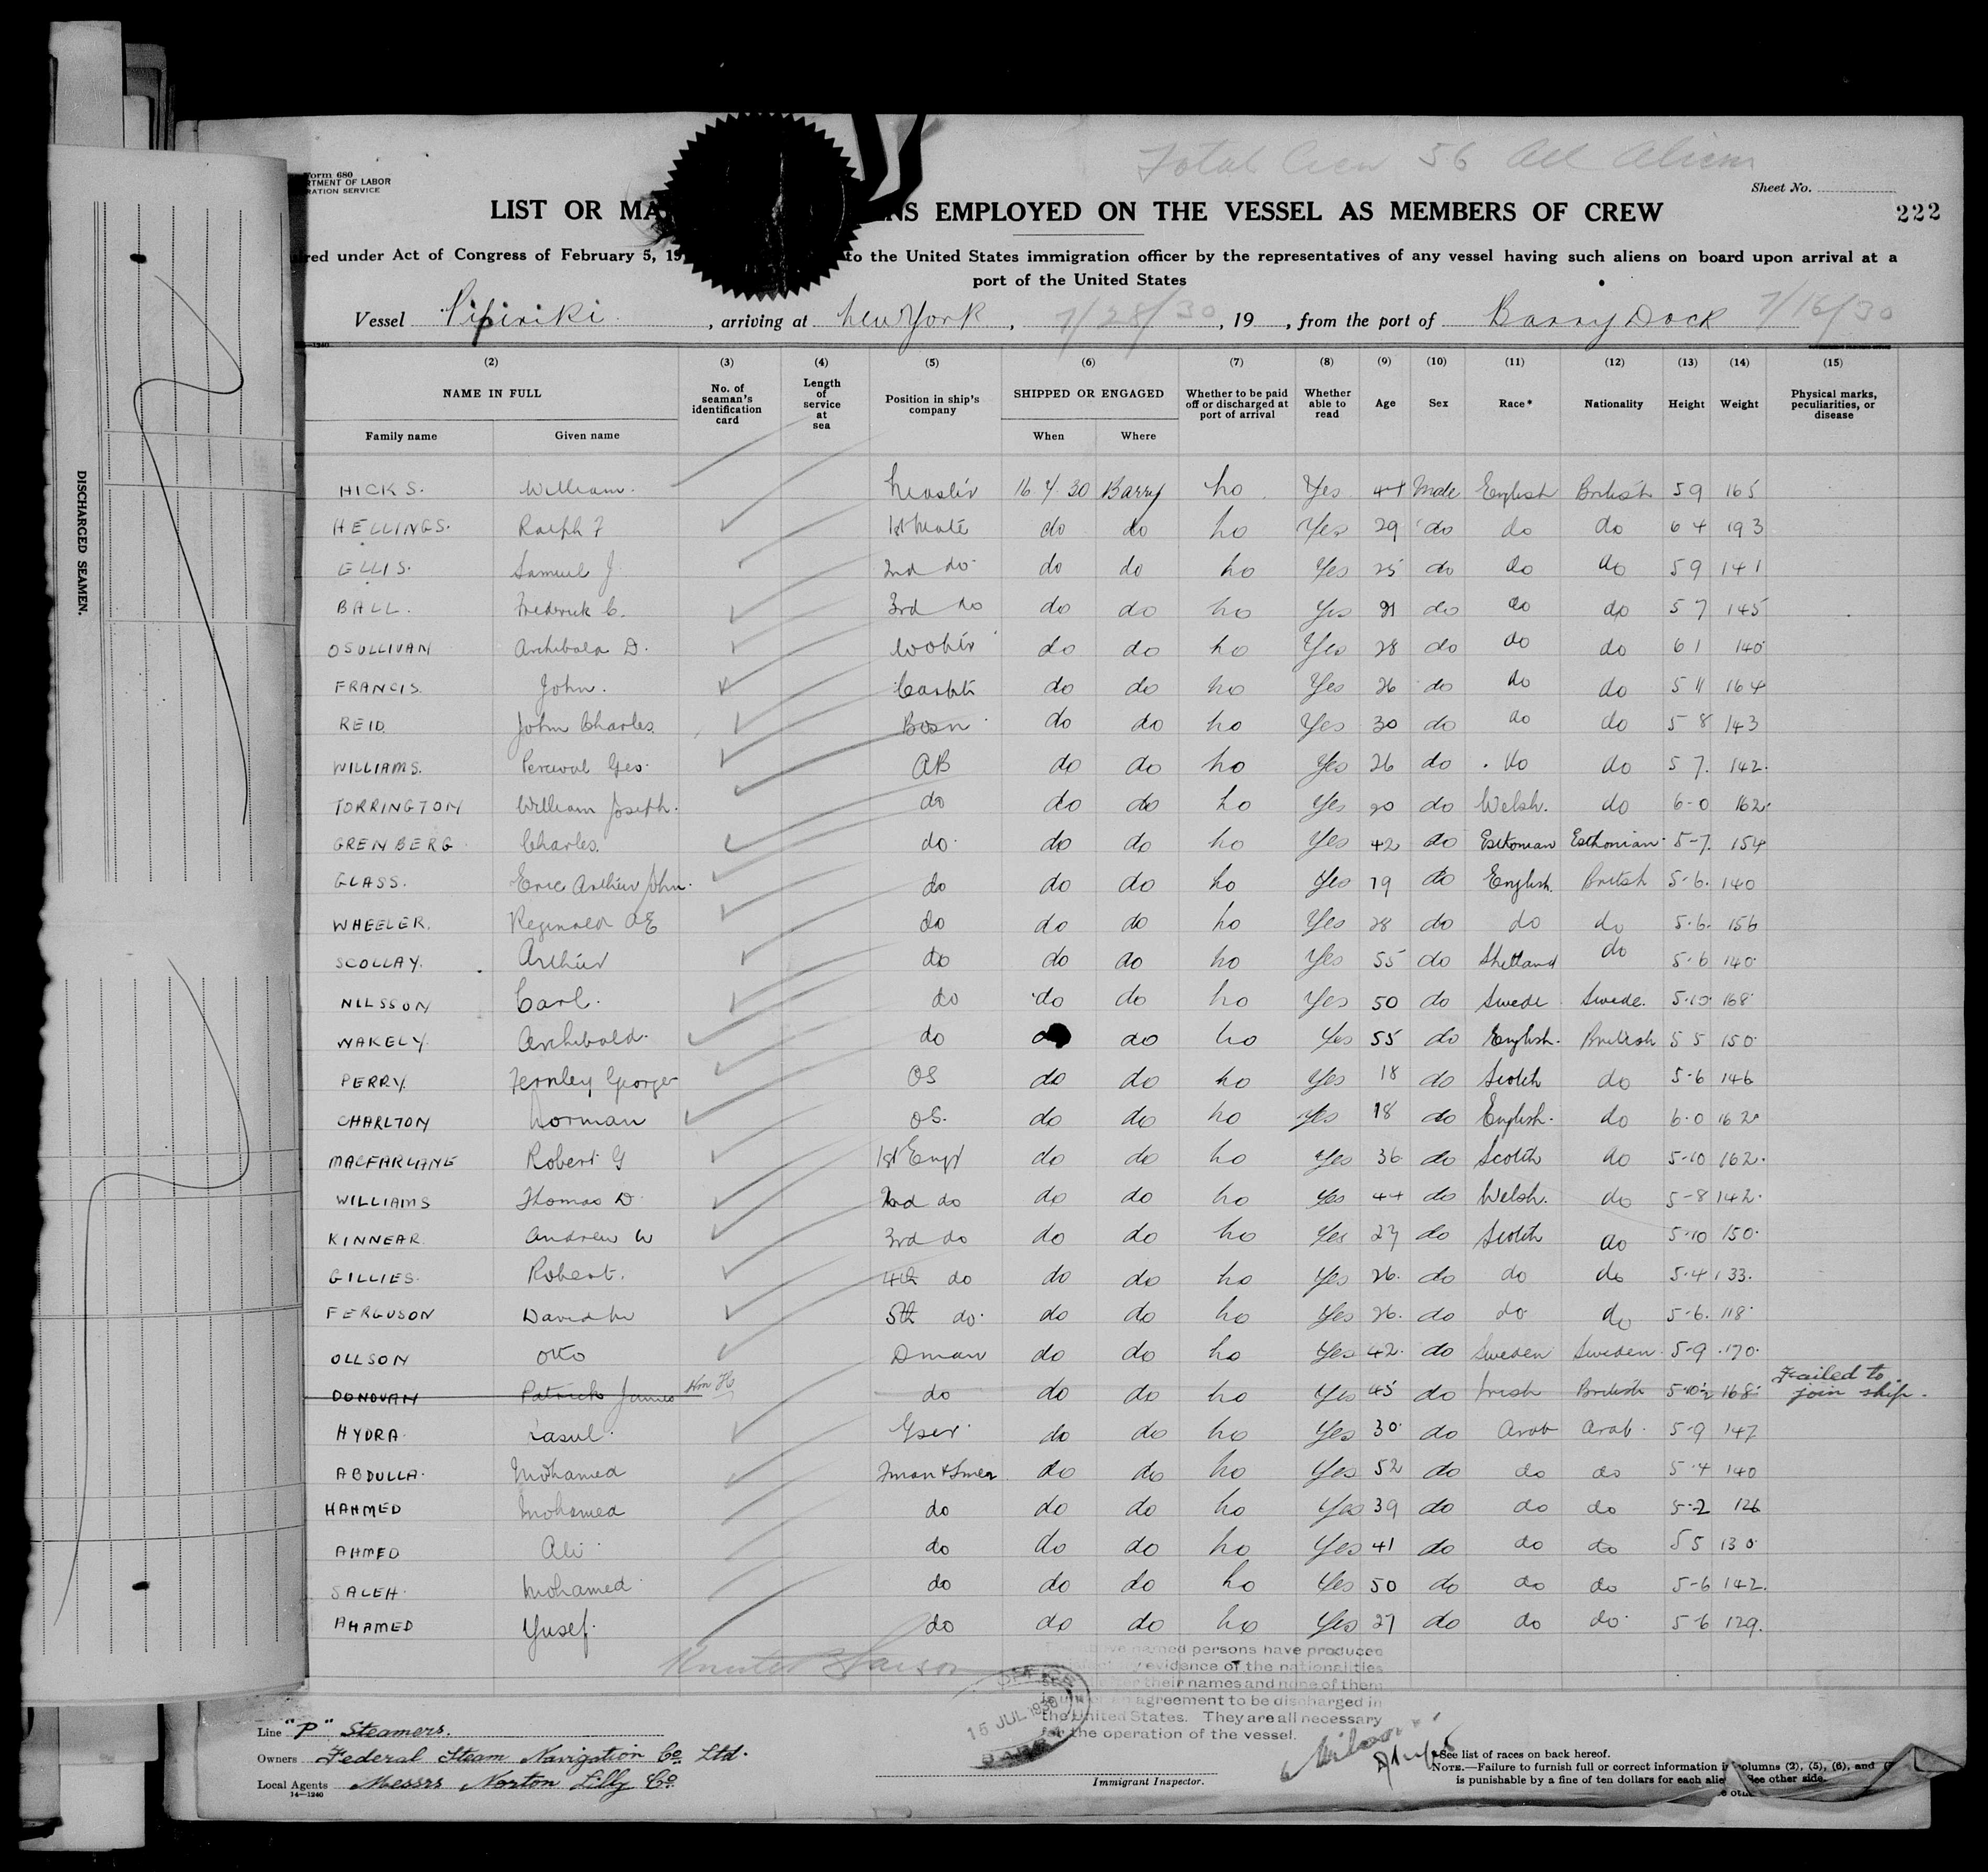 Form 680
RTMENT OF LABOR
RATION SERVICE
Total Crew 56 All Aliens
Sheet No.
222
LIST OR MA NS EMPLOYED ON THE VESSEL AS MEMBERS OF CREW
red under Act of Congress of February 5, 19 to the United States immigration officer by the representatives of any vessel having such aliens on board upon arrival at a
port of the United States
Vessel Pipiriki, arriving at New York, 7/28/30, 19 , from the port of Barry Dock 7/16/30
(2) (3) (4) (5) (6) (7) (8) (9) (10) (11) (12) (13) (14) (15)
NAME IN FULL No. of seaman's identification card Length of service at sea Position in ship's company SHIPPED OR ENGAGED Whether to be paid off or discharged at port of arrival Whether able to read Age Sex Race* Nationality Height Weight Physical marks, peculiarities, or disease
Family name Given name When Where
HICKS. William. Master 16 7 30 Barry No Yes 44 Male English British 5 9 165
HELLINGS. Ralph F 1st Mate do do No Yes 29 do do do 6 4 193
ELLIS. Samuel J 2nd do do do No Yes 25 do do do 5 9 141
BALL. Frederick C. 3rd do do do No Yes 21 do do do 5 7 145
OSULLIVAN Archibald D. do do No Yes 28 do do do 6 1 140
FRANCIS. John. do do No Yes 26 do do do 5 11 164
REID. John Charles. Bosn do do No Yes 30 do do do 5 8 143
WILLIAMS. Percival Geo. AB do do No Yes 26 do do do 5 7. 142.
TORRINGTON William Joseph. do do do No Yes 20 do Welsh. do 6-0 162.
GRENBERG Charles. do. do do No Yes 42 do Esthonian Esthonian 5-7. 154
GLASS. Eric Arthur John. do do do No Yes 19 do English. British 5-6. 140
WHEELER. Reginald AE do do do No Yes 28 do do do 5.6. 156
SCOLLAY. Arthur do do do No Yes 55 do Shetland do 5.6 140.
NILSSON Carl. do do do No Yes 50 do Swede Swede. 5.10 168
WAKELY. Archibald. do do do No Yes 55 do English. British 5 5 150.
PERRY. Fernley George OS do do No Yes 18 do Scotch do 5-6 146
CHARLTON Norman OS. do do No Yes 18 do English. do 6.0 162.
MACFARLANE Robert G 1st Engr do do No Yes 36. do Scotch do 5-10 162.
WILLIAMS Thomas D. 2nd do do do No Yes 44 do Welsh. do 5-8 142.
KINNEAR. Andrew W 3rd do do do No Yes 27 do Scotch do 5.10 150.
GILLIES. Robert. 4th do do do No Yes 26. do do do 5.4 133.
FERGUSON David 5th do. do do No Yes 26. do do do 5-6. 118.
OLLSON Otto Dman do do No Yes 42. do Sweden Sweden. 5-9 170.
DONOVAN Patrick James do do do No Yes 45 do Irish British 5-10½ 168. Failed to join ship.
HYDRA Gser do do No Yes 30. do Arab Arab. 5-9 147
ABDULLA. Mohamed Fman & Tmer do do No Yes 52 do do do 5.4 140
HAHMED Mohamed do do do No Yes 39 do do do 5-2 126
AHMED Ali do do do No Yes 41 do do do 5 5 130
SALEH. Mohamed do do do No Yes 50 do do do 5-6 142.
AHAMED Yusef. do do do No Yes 27 do do do. 5 6 129.
named persons have produced
evidence of the nationalities
their names and none of them
agreement to be discharged in
the United States. They are all necessary
for the operation of the vessel.
15 JUL 1930
BARRY
Line "P" Steamers.
Owners Federal Steam Navigation Co Ltd.
Local Agents Messrs Norton Lilly Co.
14—1240
Immigrant Inspector.
*See list of races on back hereof.
NOTE.—Failure to furnish full or correct information in columns (2), (5), (6), and
is punishable by a fine of ten dollars for each alien. See other side.
DISCHARGED SEAMEN.